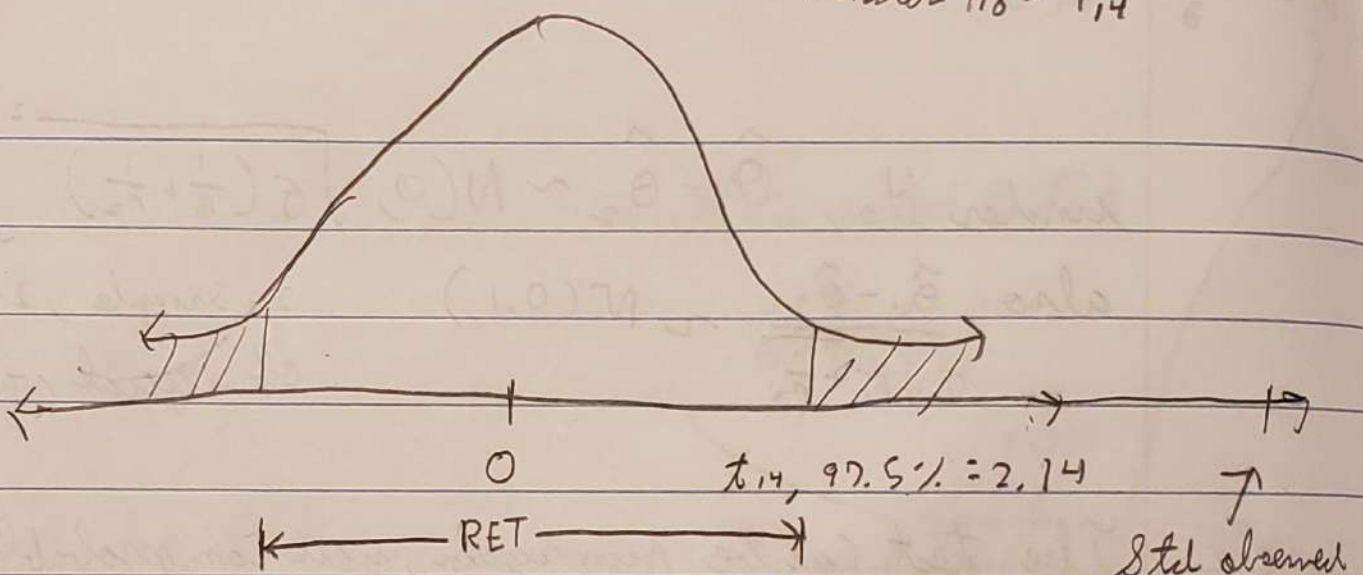 0
t 14, 97.5% = 2.14
RET
Std observed